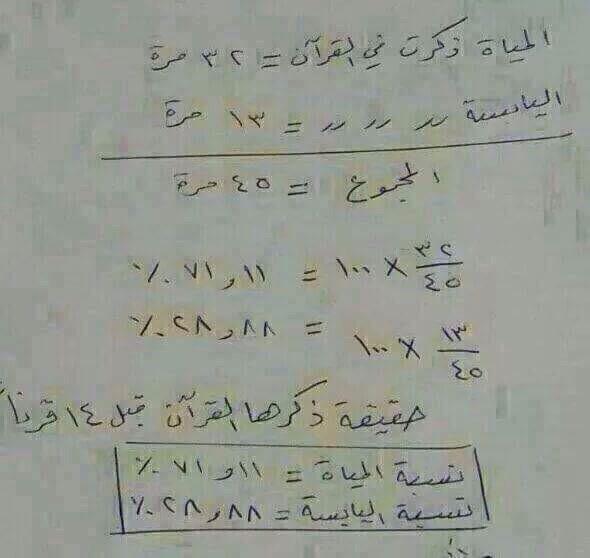 المياة ذكرت في القرآن = ٣٢ مرة
اليابسة ,, ,, ,, = ١٣ مرة
المجموع = ٤٥ مرة
٣٢/٤٥ × ١٠٠ = ٧١,١١ ٪
١٣/٤٥ × ١٠٠ = ٢٨,٨٨ ٪
حقيقة ذكرها القرآن قبل ١٤ قرناً
نسبة المياة = ٧١,١١ ٪
نسبة اليابسة = ٢٨,٨٨ ٪